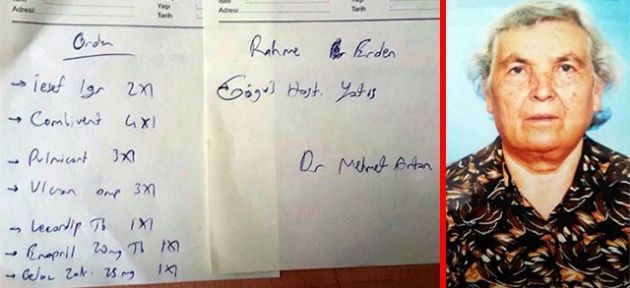 İsmi
Adresi:
Yaşı
Tarih
Adresi:
Order
→ iesef 1gr 2x1
→ Combivent 4x1
→ Pulmicort 3x1
→ Ulcuran amp 3x1
→ Lercadip Tb 1x1
→ Enapril 20mg Tb 1x1
→ Beloc Zok 25mg 1x1
Rahme Erden
Göğüs Hast. Yatış
Dr Mehmet